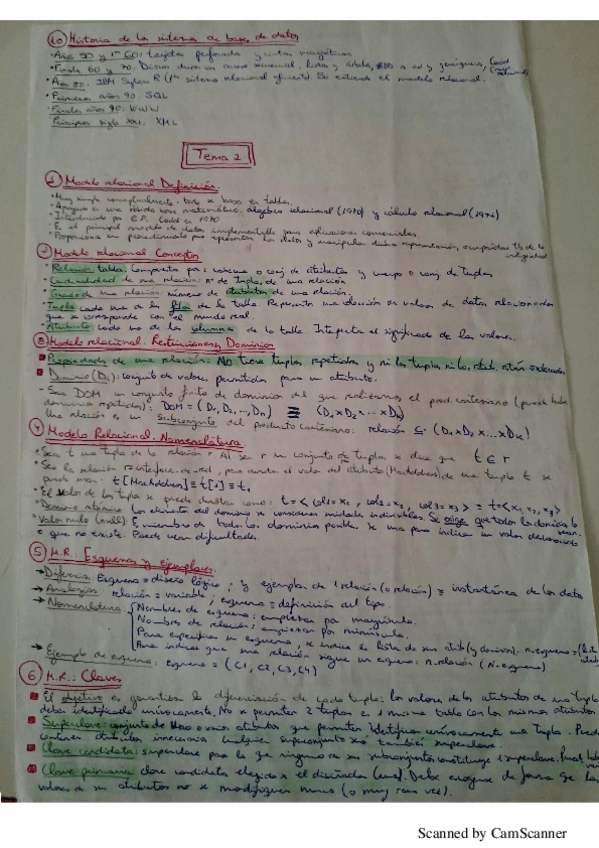 10 Historia de los sistemas de bases de datos
• Años 50 y 1os 60: tarjetas perforadas y cintas magnéticas
• Finales 60 y 70: Discos duros en acceso secuencial, listas y árboles, BBDD en red y jerárquicas, Codd
• Años 80: IBM System R (1er sistema relacional eficiente). Se extiende el modelo relacional.
• Primeros años 90: SQL
Finales años 90: WWW
Principios siglo XXI: XML
Tema 2
1 Modelo relacional Definición
• Muy simple conceptualmente: todo se basa en tablas.
• Apoyado en una sólida base matemática: álgebra relacional (1970) y cálculo relacional (1972)
• Introducido por E.F. Codd en 1970
• Es el principal modelo de datos implementable para aplicaciones comerciales.
• Proporciona un procedimiento para representar los datos y manipular dicha representación,
integridad
2 Modelo relacional. Conceptos
• Relación: tabla. Compuesta por: esquema o conj de atributos y cuerpo o conj de tuplas
• Cardinalidad de una relación: nº de tuplas de una relación
• Grado de una relación: número de atributos de una relación.
• Tupla: cada una de las filas de la tabla. Representa una colección de valores de datos relacionados
que se corresponde con el mundo real.
• Atributo: cada una de las columnas de la tabla. Interpreta el significado de los valores.
3 Modelo relacional. Restricciones y Dominios
Propiedades de una relación: No tiene tuplas repetidas y ni las tuplas ni los atrib. están ordenados
Dominio (Di): conjunto de valores permitidos para un atributo.
- Sea DOM un conjunto finito de dominios del que realizamos el prod. cartesiano (puede haber
dominios repetidos): DOM = (D1, D2, ..., Dn) ≡ (D1 x D2 x ... x Dn)
Una relación es un subconjunto del producto cartesiano: relación ⊆ (D1 x D2 x ... x Dn)
4 Modelo Relacional. Nomenclatura
• Sea t una tupla de la relación r. Así se r un conjunto de tuplas se dice que t ∈ r
• Sea la relación r = interface_de_red, para acceder al valor del atributo (MacAddress) de una tupla t se
puede usar: t[MacAddress] ≡ t[1] ≡ t1
• El valor de las tuplas se puede denotar como: t = <col1 = x1, col2 = x2, col3 = x3> = t = <x1, x2, x3>
• Dominio atómico: los elementos del dominio se consideran unidades indivisibles. Se exige que todos los dominios lo sean.
• Valor nulo (null): Es miembro de todos los dominios posibles. Se usa para indicar un valor desconocido
o que no existe. Puede crear dificultades.
5 M.R.: Esquemas y ejemplares
→ Diferencia: Esquema = diseño lógico; y ejemplar de 1 relación (o relación) = instantánea de los datos
→ Analogías: relación = variable; esquema = definición del tipo.
→ Nomenclatura: Nombres de esquema: empiezan por mayúscula.
Nombres de relación: empiezan por minúscula.
Para especificar un esquema, se indica la lista de sus atrib (y dominios): n.esquema = (lista
Para indicar que una relación sigue un esquema: n.relación (N-esquema)
→ Ejemplo de esquema: esquema = (C1, C2, C3, C4)
6 M.R.: Claves
El objetivo es garantizar la diferenciación de cada tupla: los valores de los atributos de una tupla
deben identificarla unívocamente. No se permiten 2 tuplas en 1 misma tabla con los mismos atributos
Superclave: conjunto de uno o varios atributos que permiten identificar unívocamente una tupla. Puede
contener atributos innecesarios. Cualquier superconjunto será también superclave.
Clave candidata: superclave para la que ninguno de sus subconjuntos constituye 1 superclave.
Clave primaria: clave candidata elegida x el diseñador (una). Debe escogerse de forma que los
valores de sus atributos no se modifiquen nunca (o muy rara vez).
Scanned by CamScanner